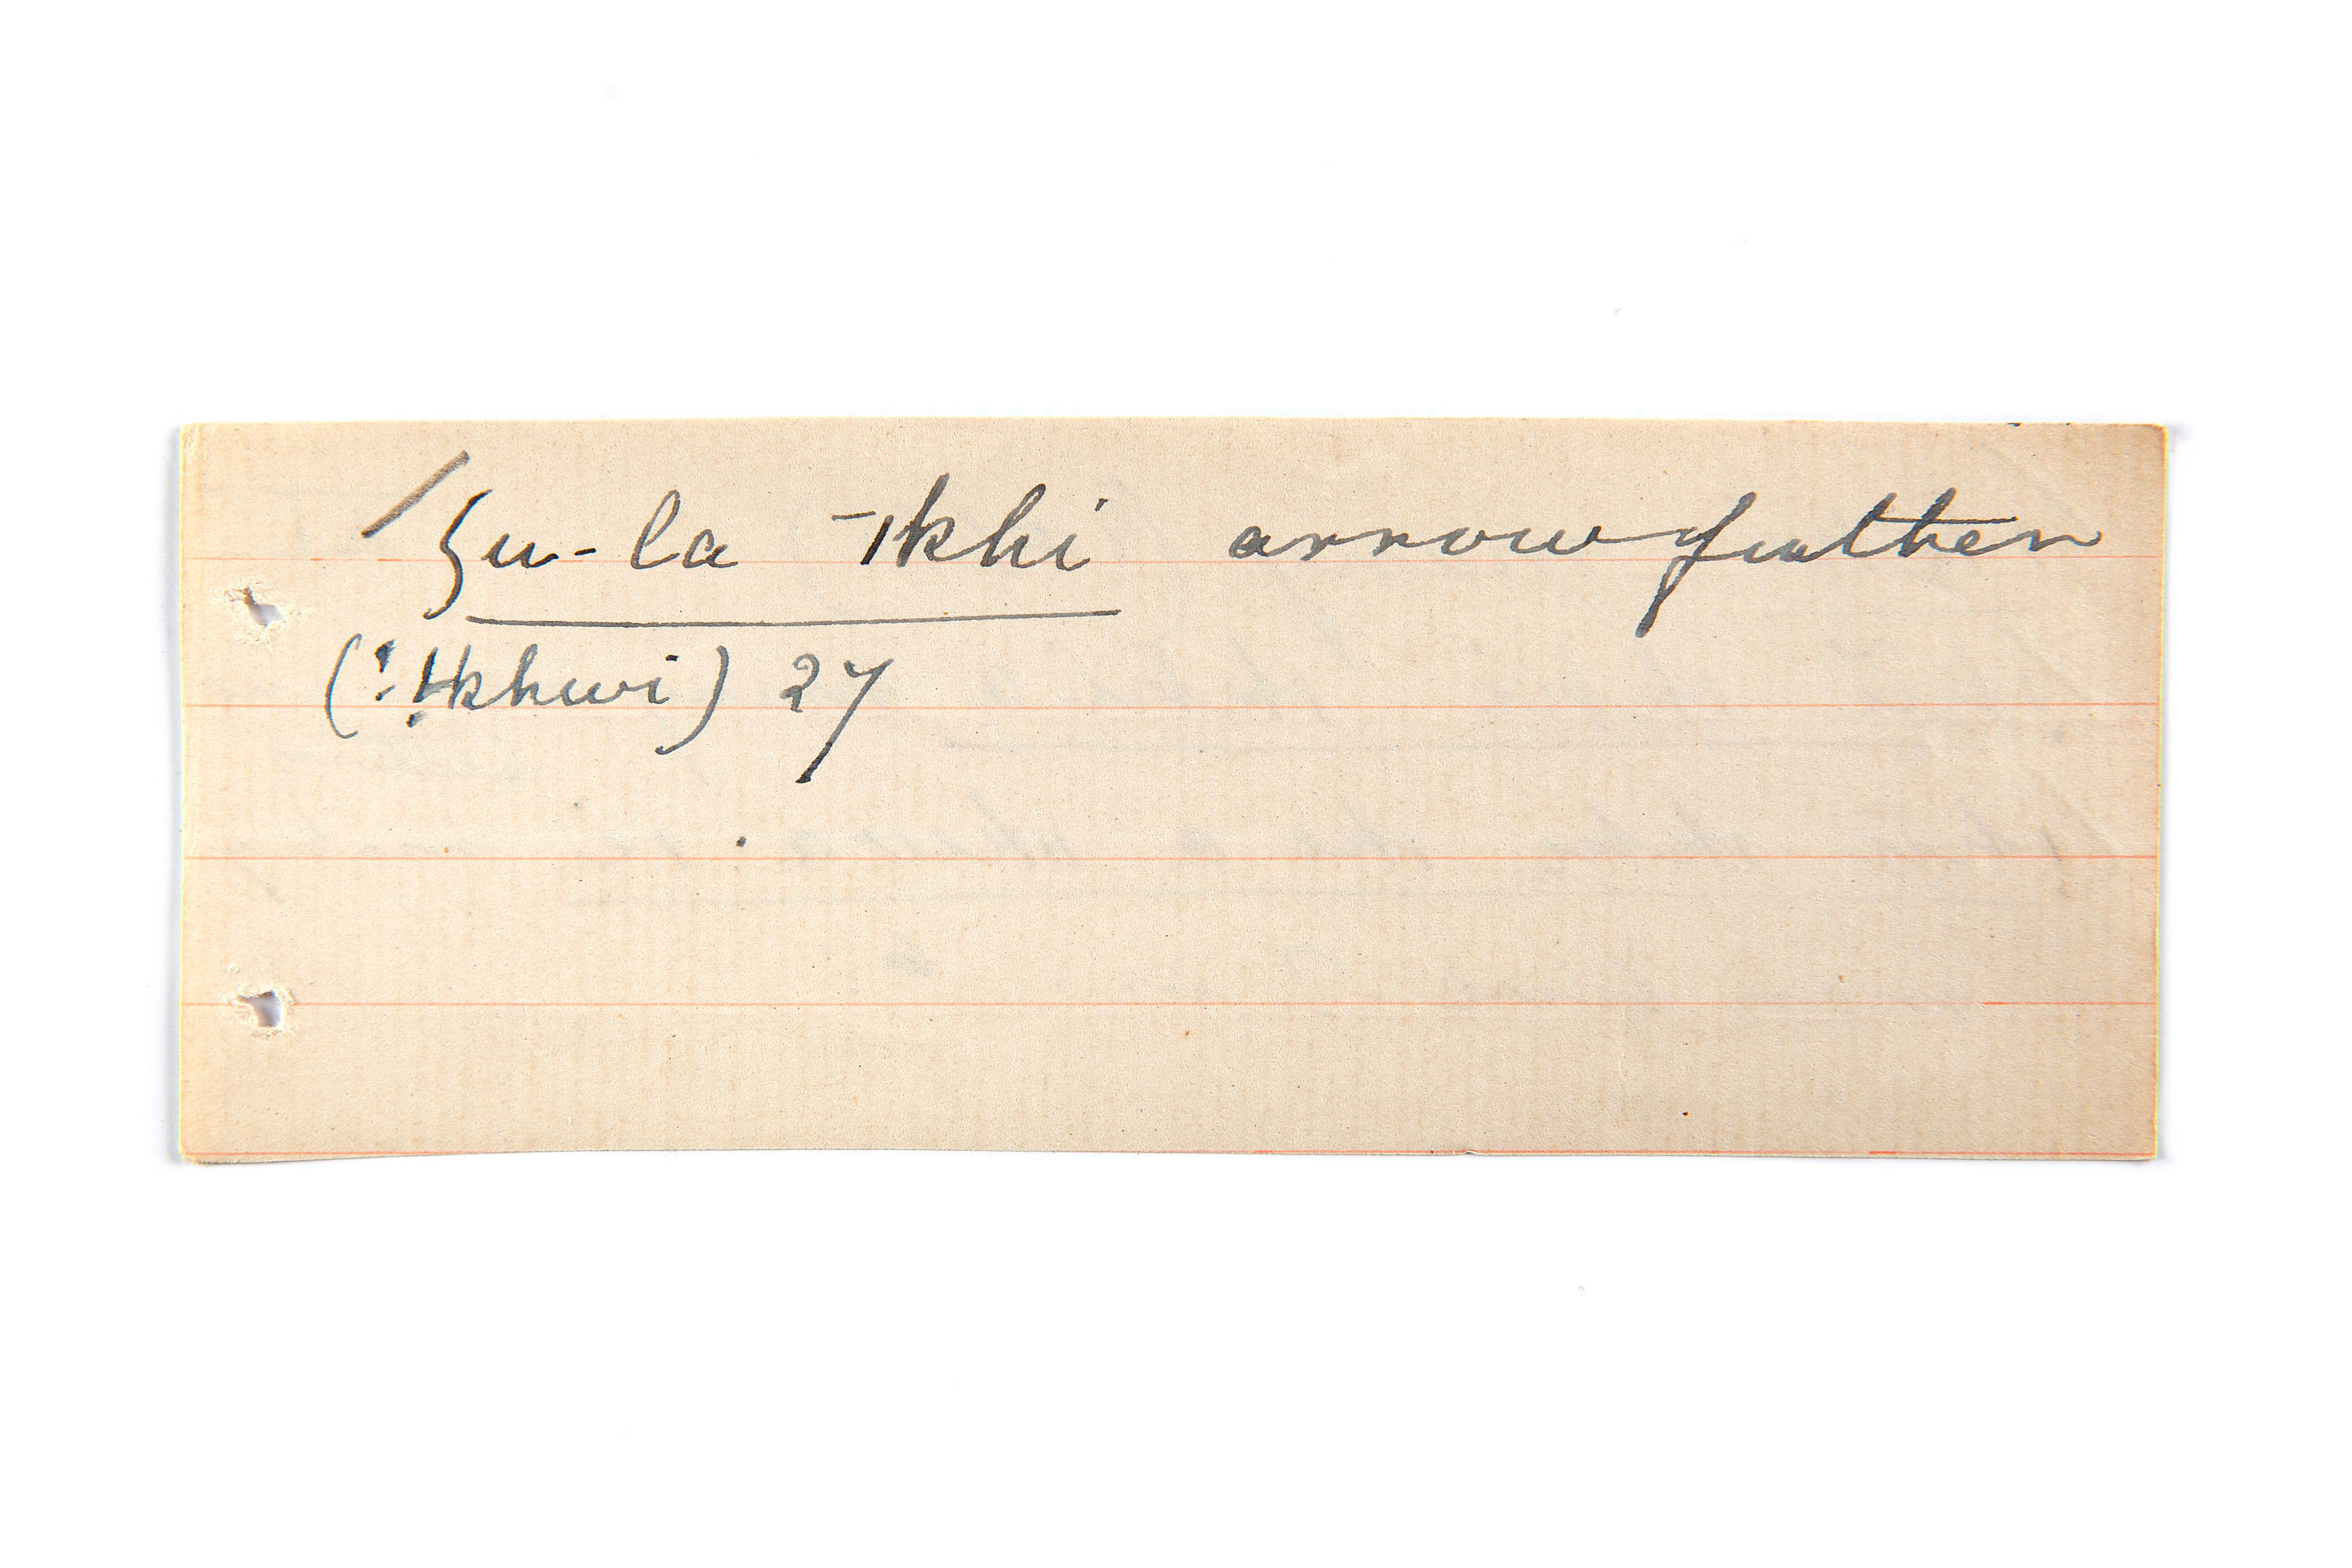 ʃu-la -ǀkhi arrow feather
(ǃkhwi) 27